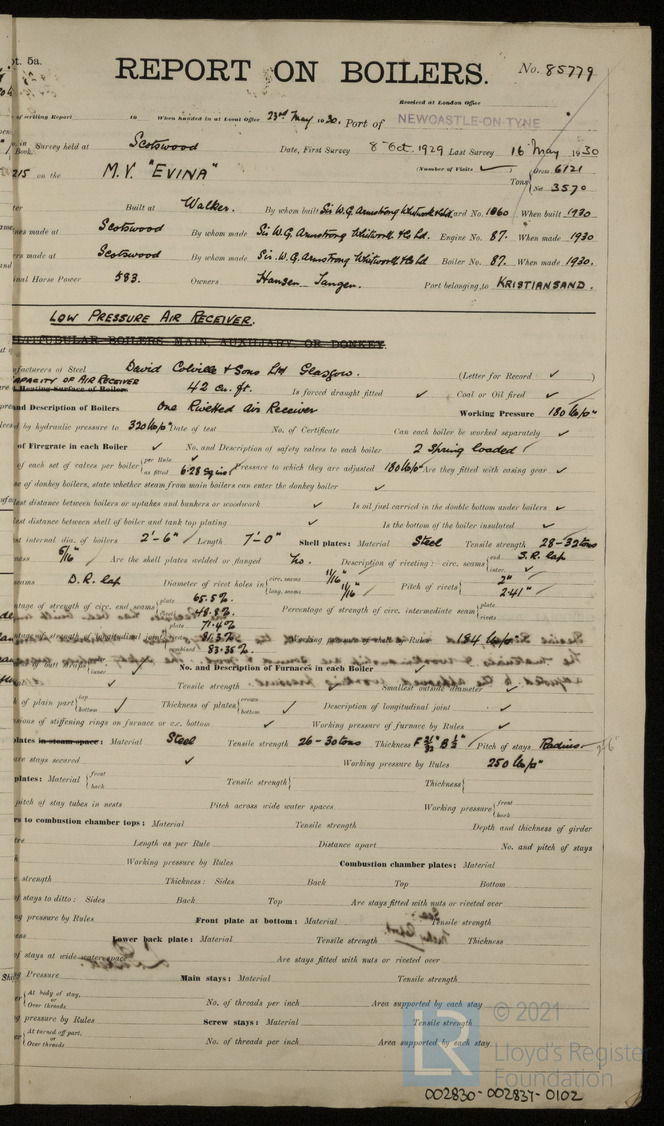 pt. 5a.
REPORT ON BOILERS.
No. 85779
Received at London Office
of writing Report 19 When handed in at Local Office 23rd May 1930. Port of NEWCASTLE-ON-TYNE
in Survey held at Scotswood Date, First Survey 8 Oct 1929 Last Survey 16 May 1930
Book.
215 on the M.V. "EVINA" (Number of Visits ✓) Tons { Gross 6121
Net 3570
Built at Walker. By whom built Sir W.G. Armstrong Whitworth & Co Ltd Yard No. 1060 When built 1930
made at Scotswood By whom made Sir W.G. Armstrong Whitworth & Co Ltd. Engine No. 87. When made 1930
made at Scotswood By whom made Sir. W.G. Armstrong Whitworth & Co Ltd Boiler No. 87. When made 1930.
Horse Power 583. Owners Hansen Tangen. Port belonging to KRISTIANSAND.
LOW PRESSURE AIR RECEIVER.
BOILERS MAIN, AUXILIARY, OR DONKEY.
of Steel David Colville & Sons Ltd Glasgow. (Letter for Record ✓ )
CAPACITY OF AIR RECEIVER
Heating Surface of Boiler 42 cu. ft. Is forced draught fitted ✓ Coal or Oil fired ✓
and Description of Boilers One Rivetted Air Receiver Working Pressure 180 lb/□"
by hydraulic pressure to 320 lb/□" Date of test No. of Certificate Can each boiler be worked separately ✓
of Firegrate in each Boiler ✓ No. and Description of safety valves to each boiler 2 Spring loaded
of each set of valves per boiler { per Rule ✓
as fitted 6.28 sq ins Pressure to which they are adjusted 180 lb/□" Are they fitted with easing gear ✓
of donkey boilers, state whether steam from main boilers can enter the donkey boiler ✓
distance between boilers or uptakes and bunkers or woodwork ✓ Is oil fuel carried in the double bottom under boilers ✓
distance between shell of boiler and tank top plating ✓ Is the bottom of the boiler insulated ✓
internal dia. of boilers 2'-6" Length 7'-0" Shell plates: Material Steel Tensile strength 28-32 tons
5/16" Are the shell plates welded or flanged No. Description of riveting: circ. seams { end S.R. lap
inter. ✓
seams D.R. lap Diameter of rivet holes in { circ. seams 11/16"
long. seams 11/16" Pitch of rivets { 2"
2.41"
of strength of circ. end seams { plate 65.5%
48.8% Percentage of strength of circ. intermediate seam { plate
rivets
plate 71.4%
81.3% Working pressure of shell by Rules 184 lb/□"
combined 83.35%
No. and Description of Furnaces in each Boiler
Tensile strength ✓ Smallest outside diameter ✓
of plain part { top
bottom ✓ Thickness of plates { crown
bottom ✓ Description of longitudinal joint ✓
of stiffening rings on furnace or c.c. bottom ✓ Working pressure of furnace by Rules ✓
plates in steam space: Material Steel Tensile strength 26-30 tons Thickness F 21/32" B 1/2" Pitch of stays Radius 2'6"
are stays secured ✓ Working pressure by Rules 250 lb/□"
plates: Material { front
back Tensile strength { Thickness {
pitch of stay tubes in nests Pitch across wide water spaces Working pressure { front
back
to combustion chamber tops: Material Tensile strength Depth and thickness of girder
Length as per Rule Distance apart No. and pitch of stays
Working pressure by Rules Combustion chamber plates: Material
strength Thickness: Sides Back Top Bottom
of stays to ditto: Sides Back Top Are stays fitted with nuts or riveted over
pressure by Rules Front plate at bottom: Material Tensile strength
Lower back plate: Material Tensile strength Thickness
of stays at wide water space Are stays fitted with nuts or riveted over
Pressure Main stays: Material Tensile strength
{ At body of stay,
or
Over threads No. of threads per inch Area supported by each stay
pressure by Rules Screw stays: Material Tensile strength
{ At turned off part,
or
Over threads No. of threads per inch Area supported by each stay
LR
© 2021
Lloyd's Register
Foundation
002830-002837-0102